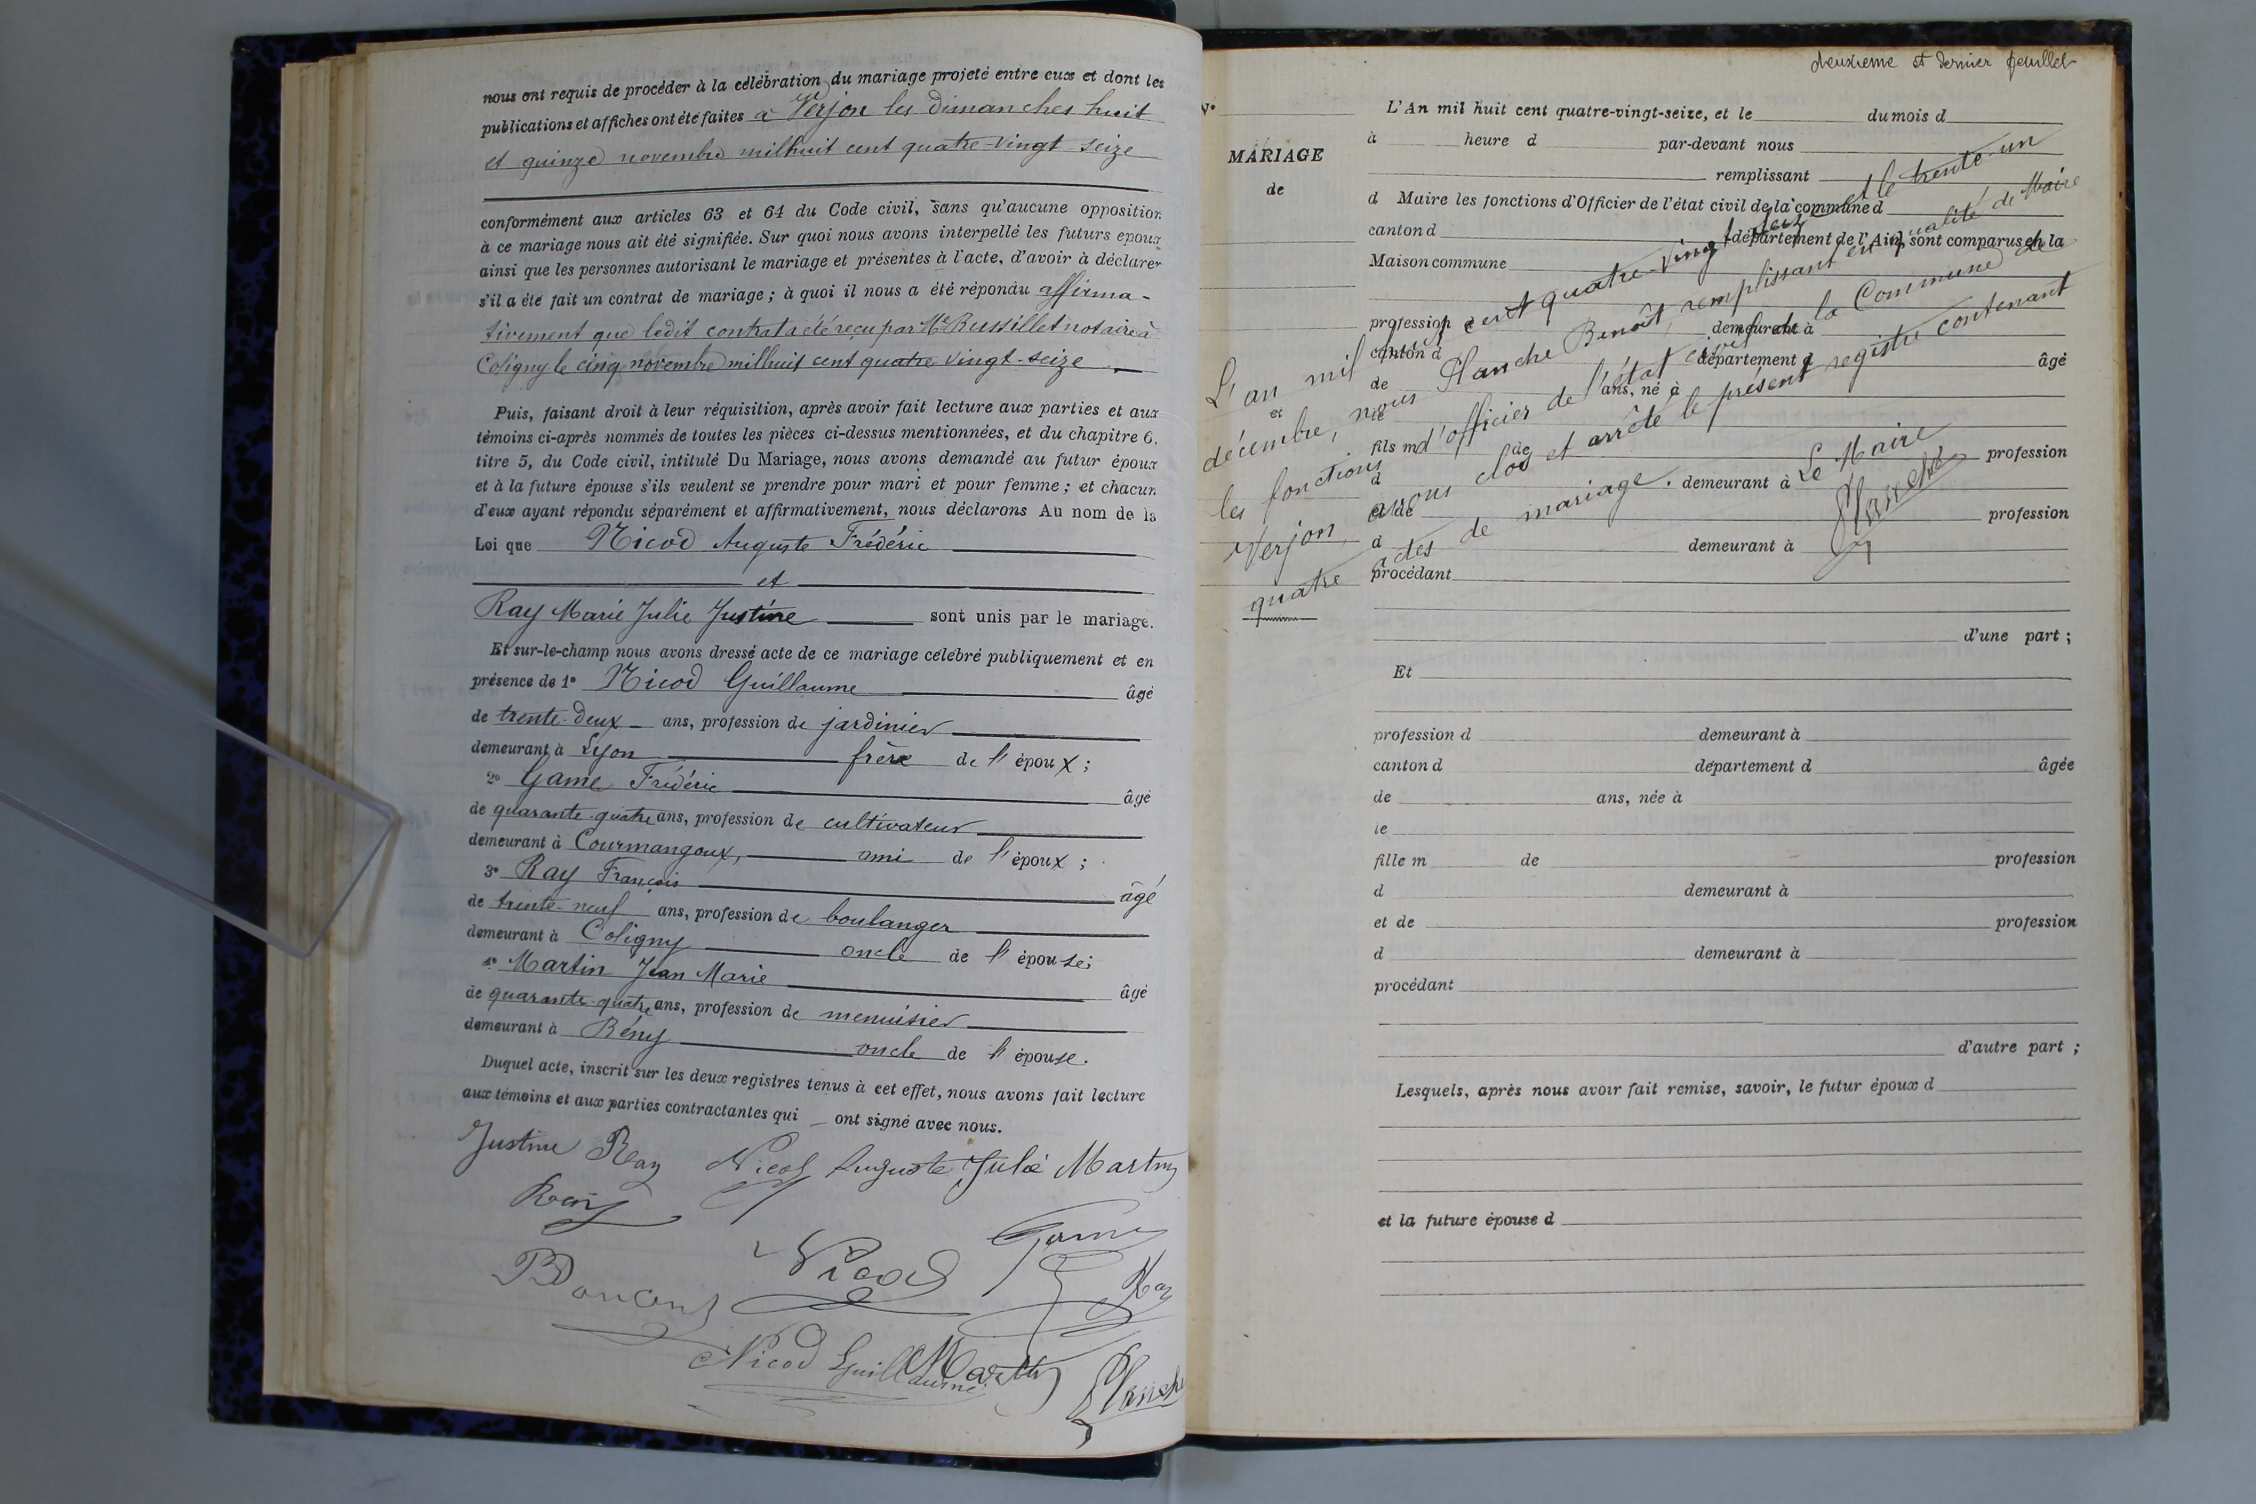 nous ont requis de procéder à la célébration du mariage projeté entre eux et dont les
publications et affiches ont été faites à Verjon les dimanches huit
et quinze novembre mil huit cent quatre-vingt seize
conformément aux articles 63 et 64 du Code civil, sans qu'aucune opposition
à ce mariage nous ait été signifiée. Sur quoi nous avons interpellé les futurs époux
ainsi que les personnes autorisant le mariage et présentes à l'acte, d'avoir à déclarer
s'il a été fait un contrat de mariage ; à quoi il nous a été répondu affirma-
tivement que ledit contrat a été reçu par Me Bussillet notaire à
Coligny le cinq novembre mil huit cent quatre vingt-seize
Puis, faisant droit à leur réquisition, après avoir fait lecture aux parties et aux
témoins ci-après nommés de toutes les pièces ci-dessus mentionnées, et du chapitre 6,
titre 5, du Code civil, intitulé Du Mariage, nous avons demandé au futur époux
et à la future épouse s'ils veulent se prendre pour mari et pour femme ; et chacun
d'eux ayant répondu séparément et affirmativement, nous déclarons Au nom de la
Loi que Nicod Auguste Frédéric
et
Ray Marie Julie Justine sont unis par le mariage.
Et sur-le-champ nous avons dressé acte de ce mariage célébré publiquement et en
présence de 1° Nicod Guillaume âgé
de trente-deux ans, profession de jardinier
demeurant à Lyon frère de l'époux ;
2° Game Frédéric âgé
de quarante-quatre ans, profession de cultivateur
demeurant à Courmangoux, ami de l'époux ;
3° Ray François âgé
de trente-neuf ans, profession de boulanger
demeurant à Coligny oncle de l'épouse ;
4° Martin Jean Marie âgé
de quarante-quatre ans, profession de menuisier
demeurant à Bény oncle de l'épouse.
Duquel acte, inscrit sur les deux registres tenus à cet effet, nous avons fait lecture
aux témoins et aux parties contractantes qui ont signé avec nous.
Justine Ray Nicod Auguste Julie Martin
Ray
Nicod Game
Ray
Nicod Guillaume Martin Planche
deuxième et dernier feuillet
N°
MARIAGE
de
et
L'An mil huit cent quatre-vingt-seize, et le du mois d
à heure d par-devant nous
remplissant
d Maire les fonctions d'Officier de l'état civil de la commune d
canton d département de l'Ain, sont comparus en la
Maison commune
profession d demeurant à
canton d département d âgé
de ans, né à
le
fils m de profession
d demeurant à
et de profession
d demeurant à
procédant
d'une part ;
L'an mil huit cent quatre-vingt seize et le trente-un
décembre, nous Planche Benoît, remplissant en qualité de Maire
les fonctions d'officier de l'état civil de la Commune de
Verjon, avons clos et arrêté le présent registre contenant
quatre actes de mariage.
Le Maire
Planche
Et
profession d demeurant à
canton d département d âgée
de ans, née à
le
fille m de profession
d demeurant à
et de profession
d demeurant à
procédant
d'autre part ;
Lesquels, après nous avoir fait remise, savoir, le futur époux d
et la future épouse d